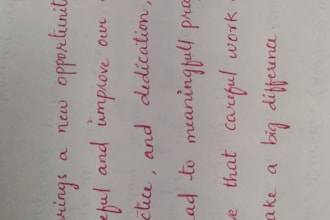 rings a new opportunit
eful and improve our
ctice, and dedication,
ad to meaningfull pra
e that careful work
ake a big difference.